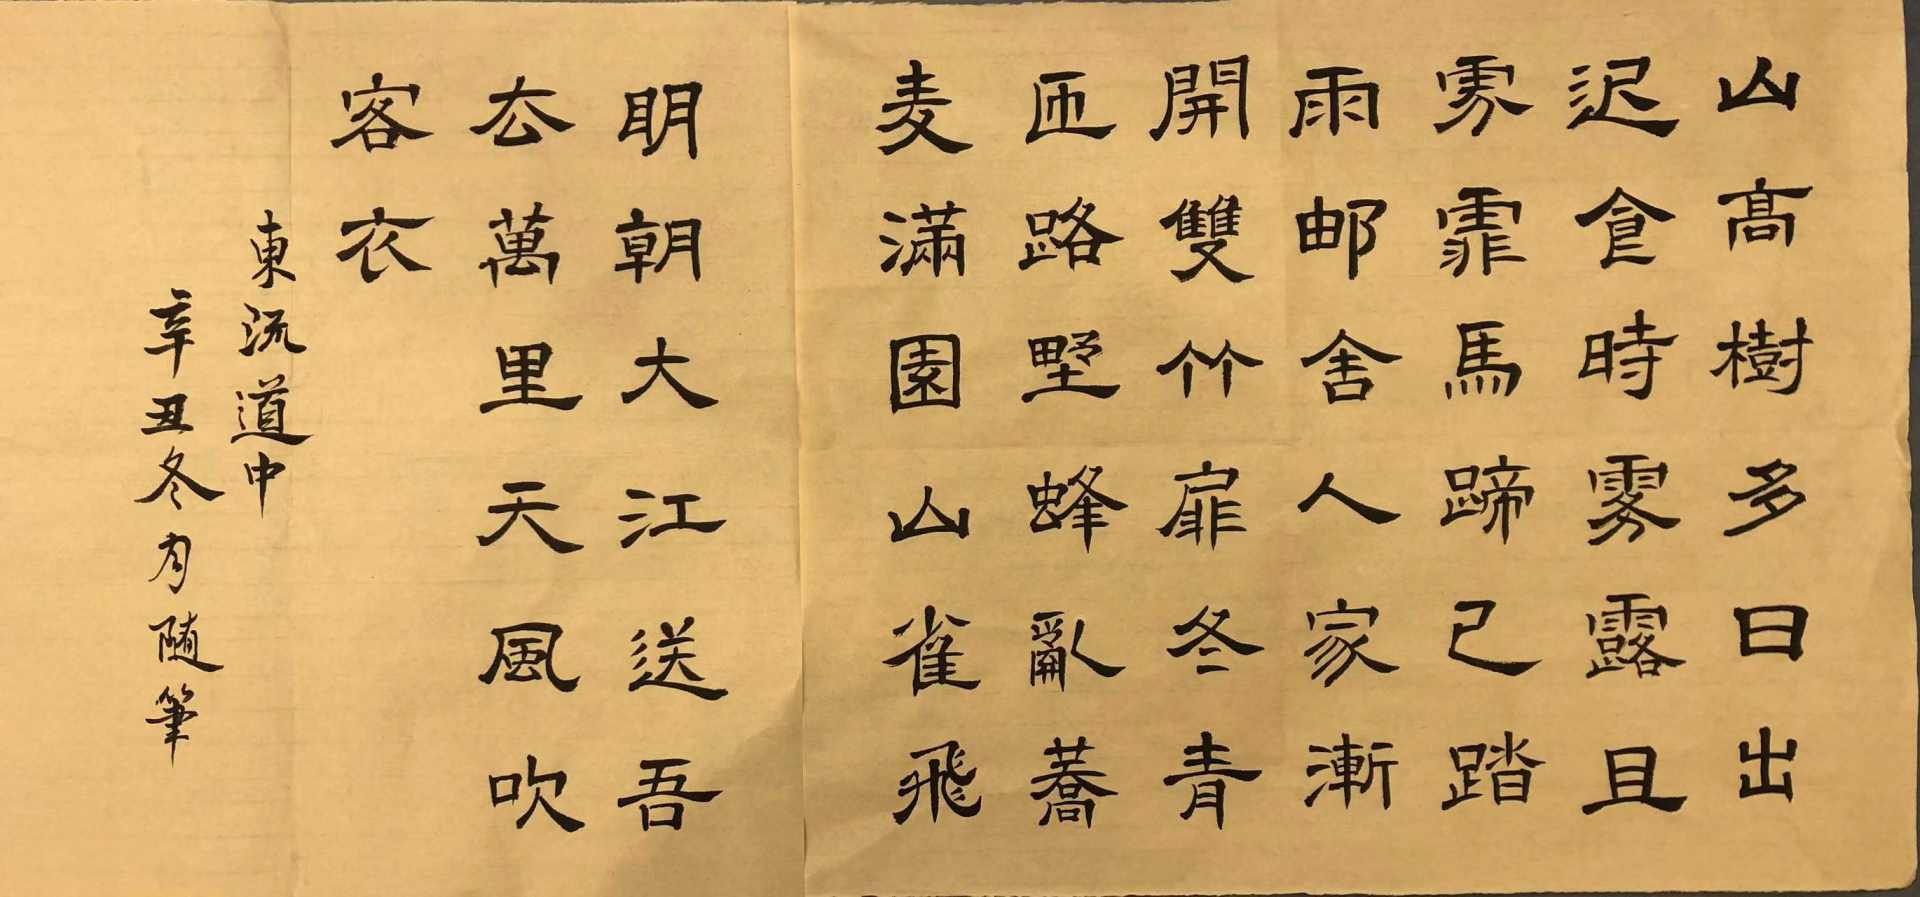 山髙樹多日出
迟食時霧露且
雰霏馬蹄已踏
雨邮舍人家漸
開雙竹扉冬青
匝路野蜂亂蕎
麦滿園山雀飛
明朝大江送吾
去萬里天風吹
客衣
東流道中
辛丑冬月随筆